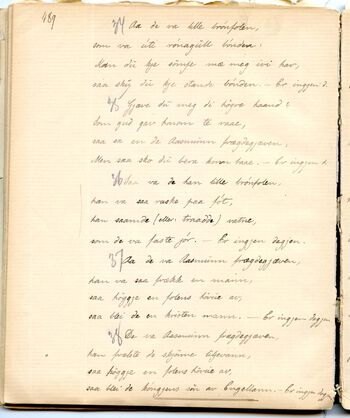 489
34 Aa de va lille brónfolen,
som va úti rónagúll búnden:
Kan dú kje símje mæ meg ivi hav,
saa skú dú kje stande búnden. — Er ingjen d.
35 Gjave dú meg di högre haand:
som gud gav honom te vare,
saa sa en de Aasmúnn frægdegjæven,
Men saa sko dú bera honn bare. — Er ingjen d.
36 Saa va de han lille brónfolen,
han va saa raske paa fót,
han saamde (eller traadde) vatne,
som de va faste jór. — Er ingjen degjen.
37 Aa de va Aasmúnn frægdegjæven,
han va saa frekk en mann,
saa höggje en folens hövúe av,
saa blei de en kristen mann. — Er ingjen degjen
38 De va Aasmúnn frægdegjæven,
han frelste de skjönne lifevann,
saa höggje en folens hövúe av,
saa blei de kongjens són av Engellann. — Er ingjen degjen